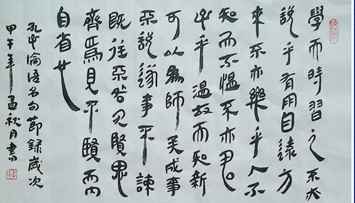 學而時習之不亦
說乎有朋自遠方
來不亦樂乎人不
知而不慍不亦君
子乎溫故而知新
可以為師矣成事
不說遂事不諫
既往不咎見賢思
齊焉見不賢而內
自省也
孔子論語名句節錄歲次
甲午年孟秋月書